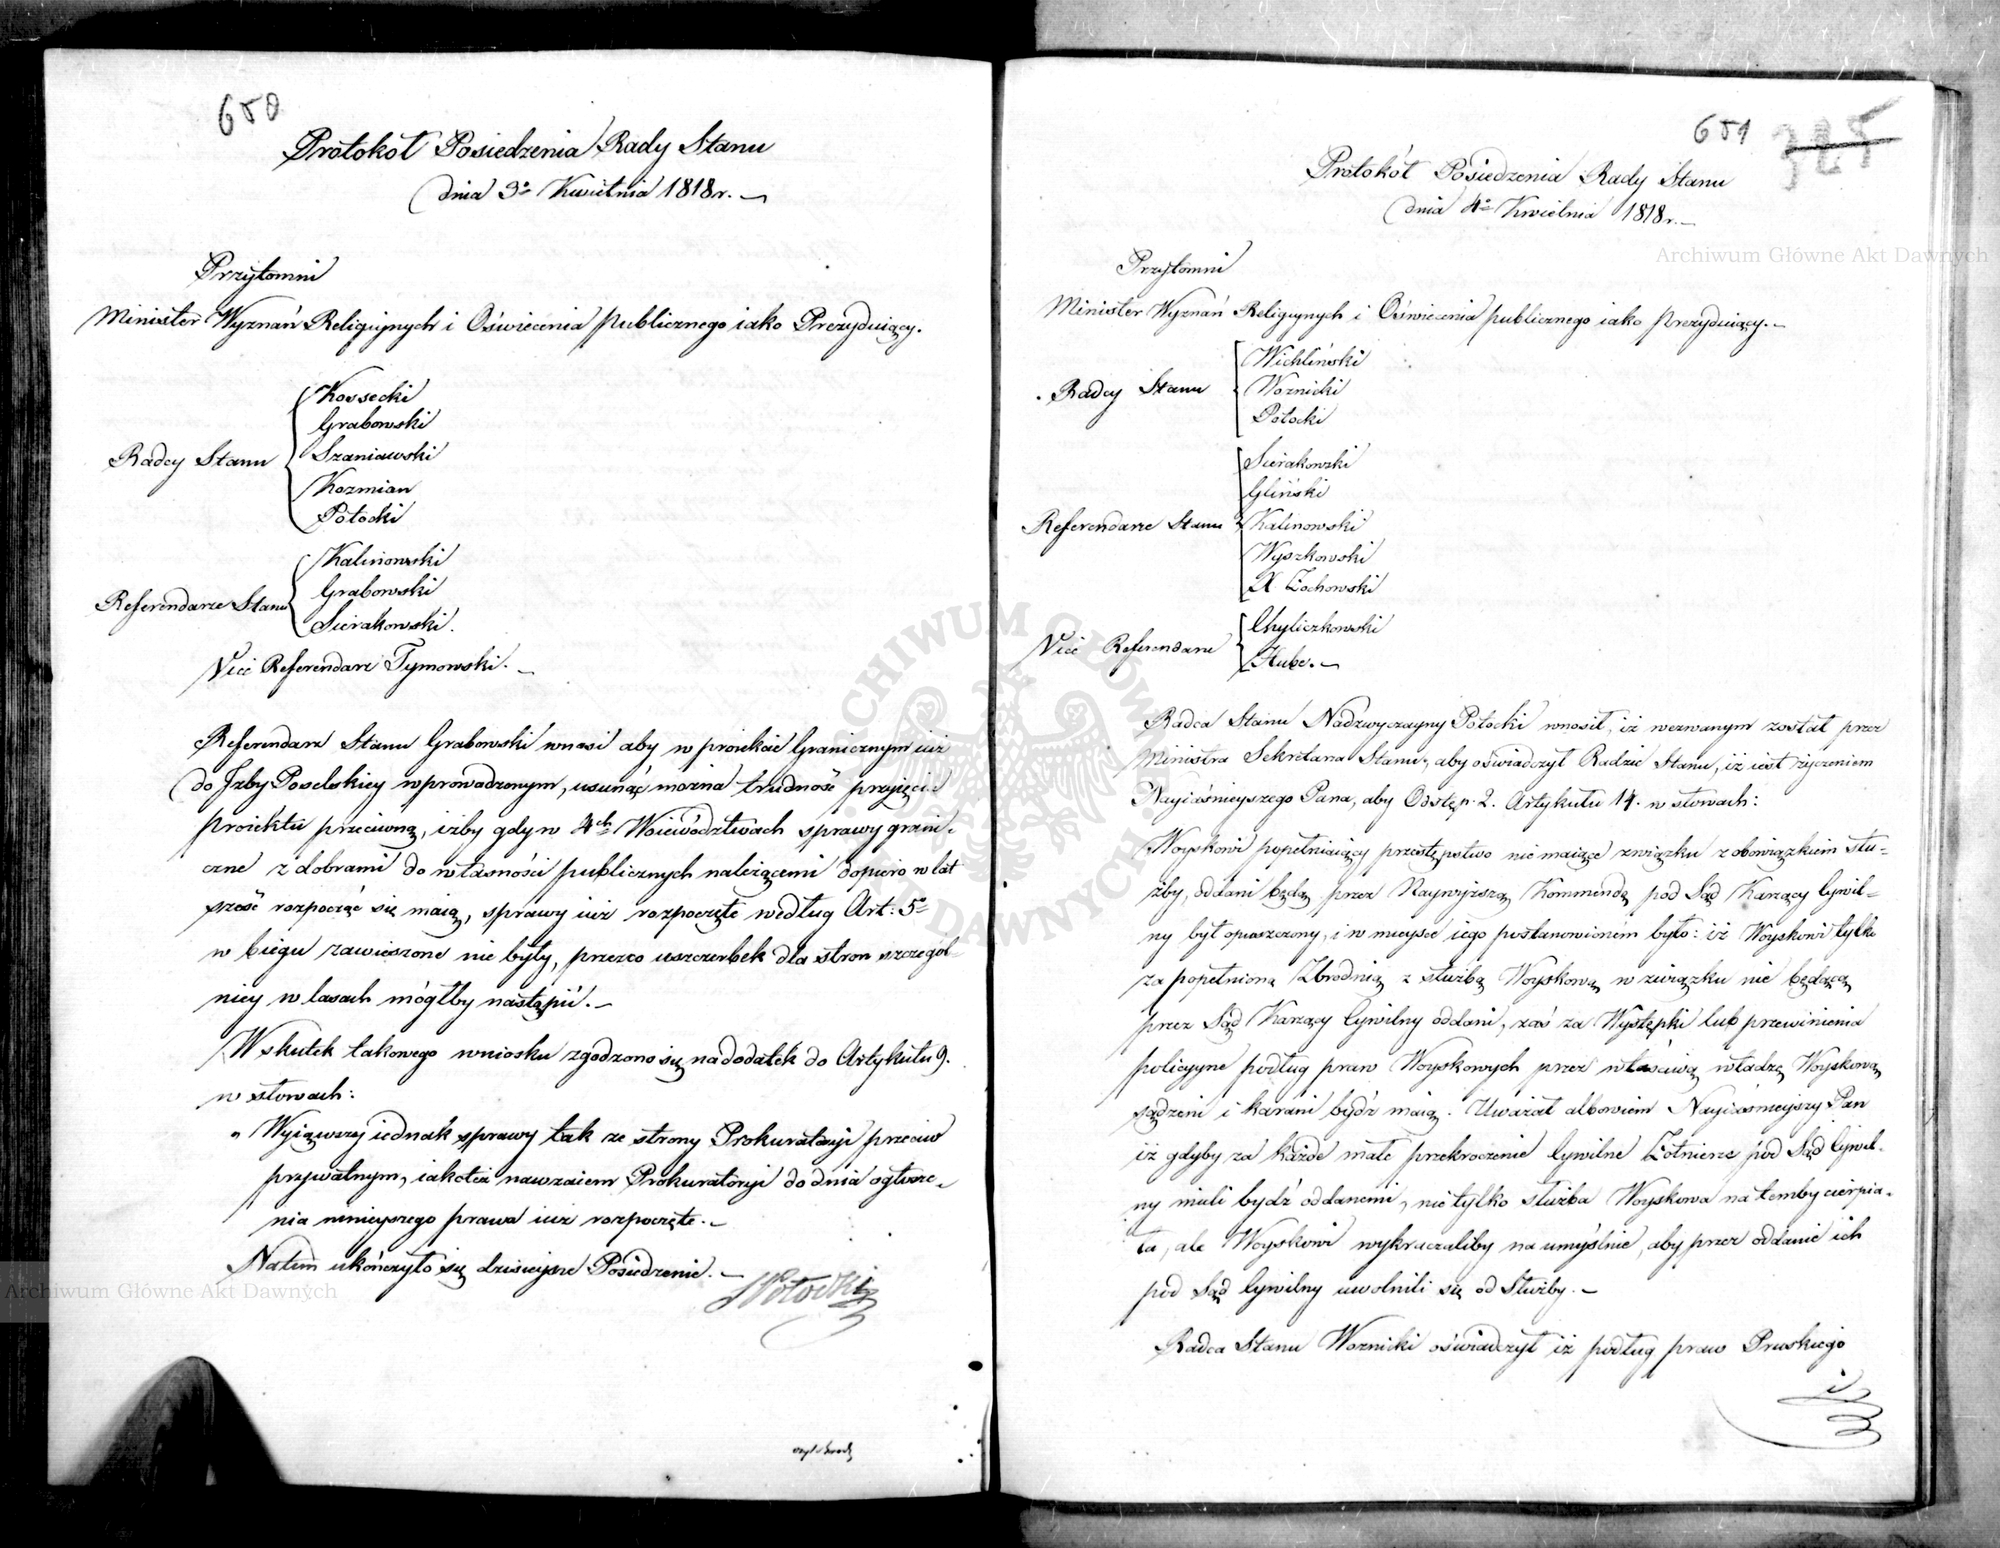 650
Protokół Posiedzenia Rady Stanu
dnia 3º Kwietnia 1818r. —
Przytomni
Minister Wyznań Religijnych i Oświecenia publicznego iako Prezyduiący.
Radcy Stanu
Kossecki
Grabowski
Szaniawski
Kozmian
Potocki
Referendarze Stanu
Kalinowski
Grabowski
Sierakowski.
Vice Referendarz Tymowski. —
Referendarz Stanu Grabowski wnosi aby w proiekcie Granicznym iuż
do Izby Poselskiey wprowadzonym, usunąć można trudność przyięciu
proiektu przeciwną, iżby gdy w 4ch Woiewództwach sprawy grani-
czne z dobrami do własności publicznych należącemi dopiero w lat
sześć rozpocząć się maią, sprawy iuż rozpoczęte według Art: 5º
w biegu zawieszone nie były, przezco uszczerbek dla stron szczegól-
niey w lasach mógłby nastąpić. —
W skutek takowego wniosku zgodzono się na dodatek do Artykułu 9.
w słowach:
„ Wyiąwszy iednak sprawy tak ze strony Prokuratoryi przeciw
prywatnym, iakoteż nawzaiem Prokuratoryi do dnia ogłosze-
nia ninieyszego prawa iuż rozpoczęte. —
Natém ukończyło się dzisieysze Posiedzenie. —
Potocki
651
325
Protokół Posiedzenia Rady Stanu
dnia 4º Kwietnia 1818r. —
Przytomni
Minister Wyznań Religijnych i Oświecenia publicznego iako prezyduiący. —
Radcy Stanu
Wichliński
Woznicki
Potocki
Referendarze Stanu
Sierakowski
Gliński
Kalinowski
Wyszkowski
X. Żochowski
Vice Referendarze
Chyliczkowski
Hube. —
Radca Stanu Nadzwyczayny Potocki wnosił, iż wezwanym został przez
Ministra Sekretarza Stanu, aby oświadczył Radzie Stanu, iż iest życzeniem
Nayiaśnieyszego Pana, aby Odstęp. 2. Artykułu 14. w słowach:
Woyskowi popełniaiący przestępstwo nie maiące związku z obowiązkiem słu-
żby, oddani będą przez Naywyższą Kommendę pod Sąd Karzący Cywil-
ny był opuszczony, i w mieysce iego postanowioném było: iż Woyskowi tylko
za popełnioną Zbrodnią z służbą Woyskową w związku nie będącą
przez Sąd Karzący Cywilny oddani, zaś za Występki lub przewinienia
policyyne podług praw Woyskowych przez właściwą władzę Woyskową
sądzeni i karani bydź maią. Uważał albowiem Nayiaśnieyszy Pan
iż gdyby za każde małe przekroczenie Cywilne Żołnierze pod Sąd Cywil-
ny mieli bydź oddanemi, nie tylko służba Woyskowa na tem by cierpia-
ła, ale Woyskowi wykraczaliby na umyślnie, aby przez oddanie ich
pod Sąd Cywilny uwolnili się od Służby. —
Radca Stanu Woznicki oświadczył iż podług praw Pruskiego
i
Archiwum Główne Akt Dawnych
Archiwum Główne Akt Dawnych
ARCHIWUM GŁÓWNE AKT DAWNYCH